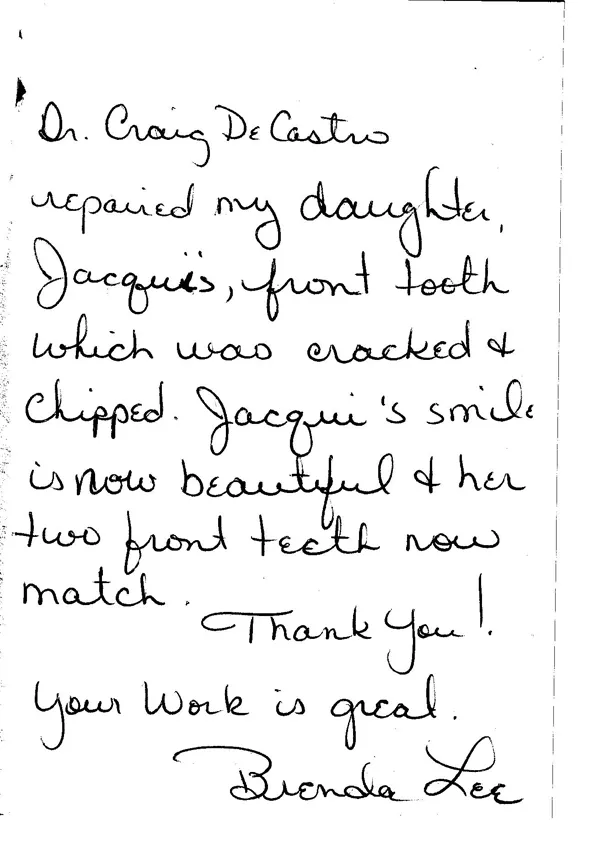 Dr. Craig DeCastro
repaired my daughter,
Jacqui's, front tooth
which was cracked &
chipped. Jacqui's smile
is now beautiful & her
two front teeth now
match.
Thank You!
Your Work is great.
Brenda Lee